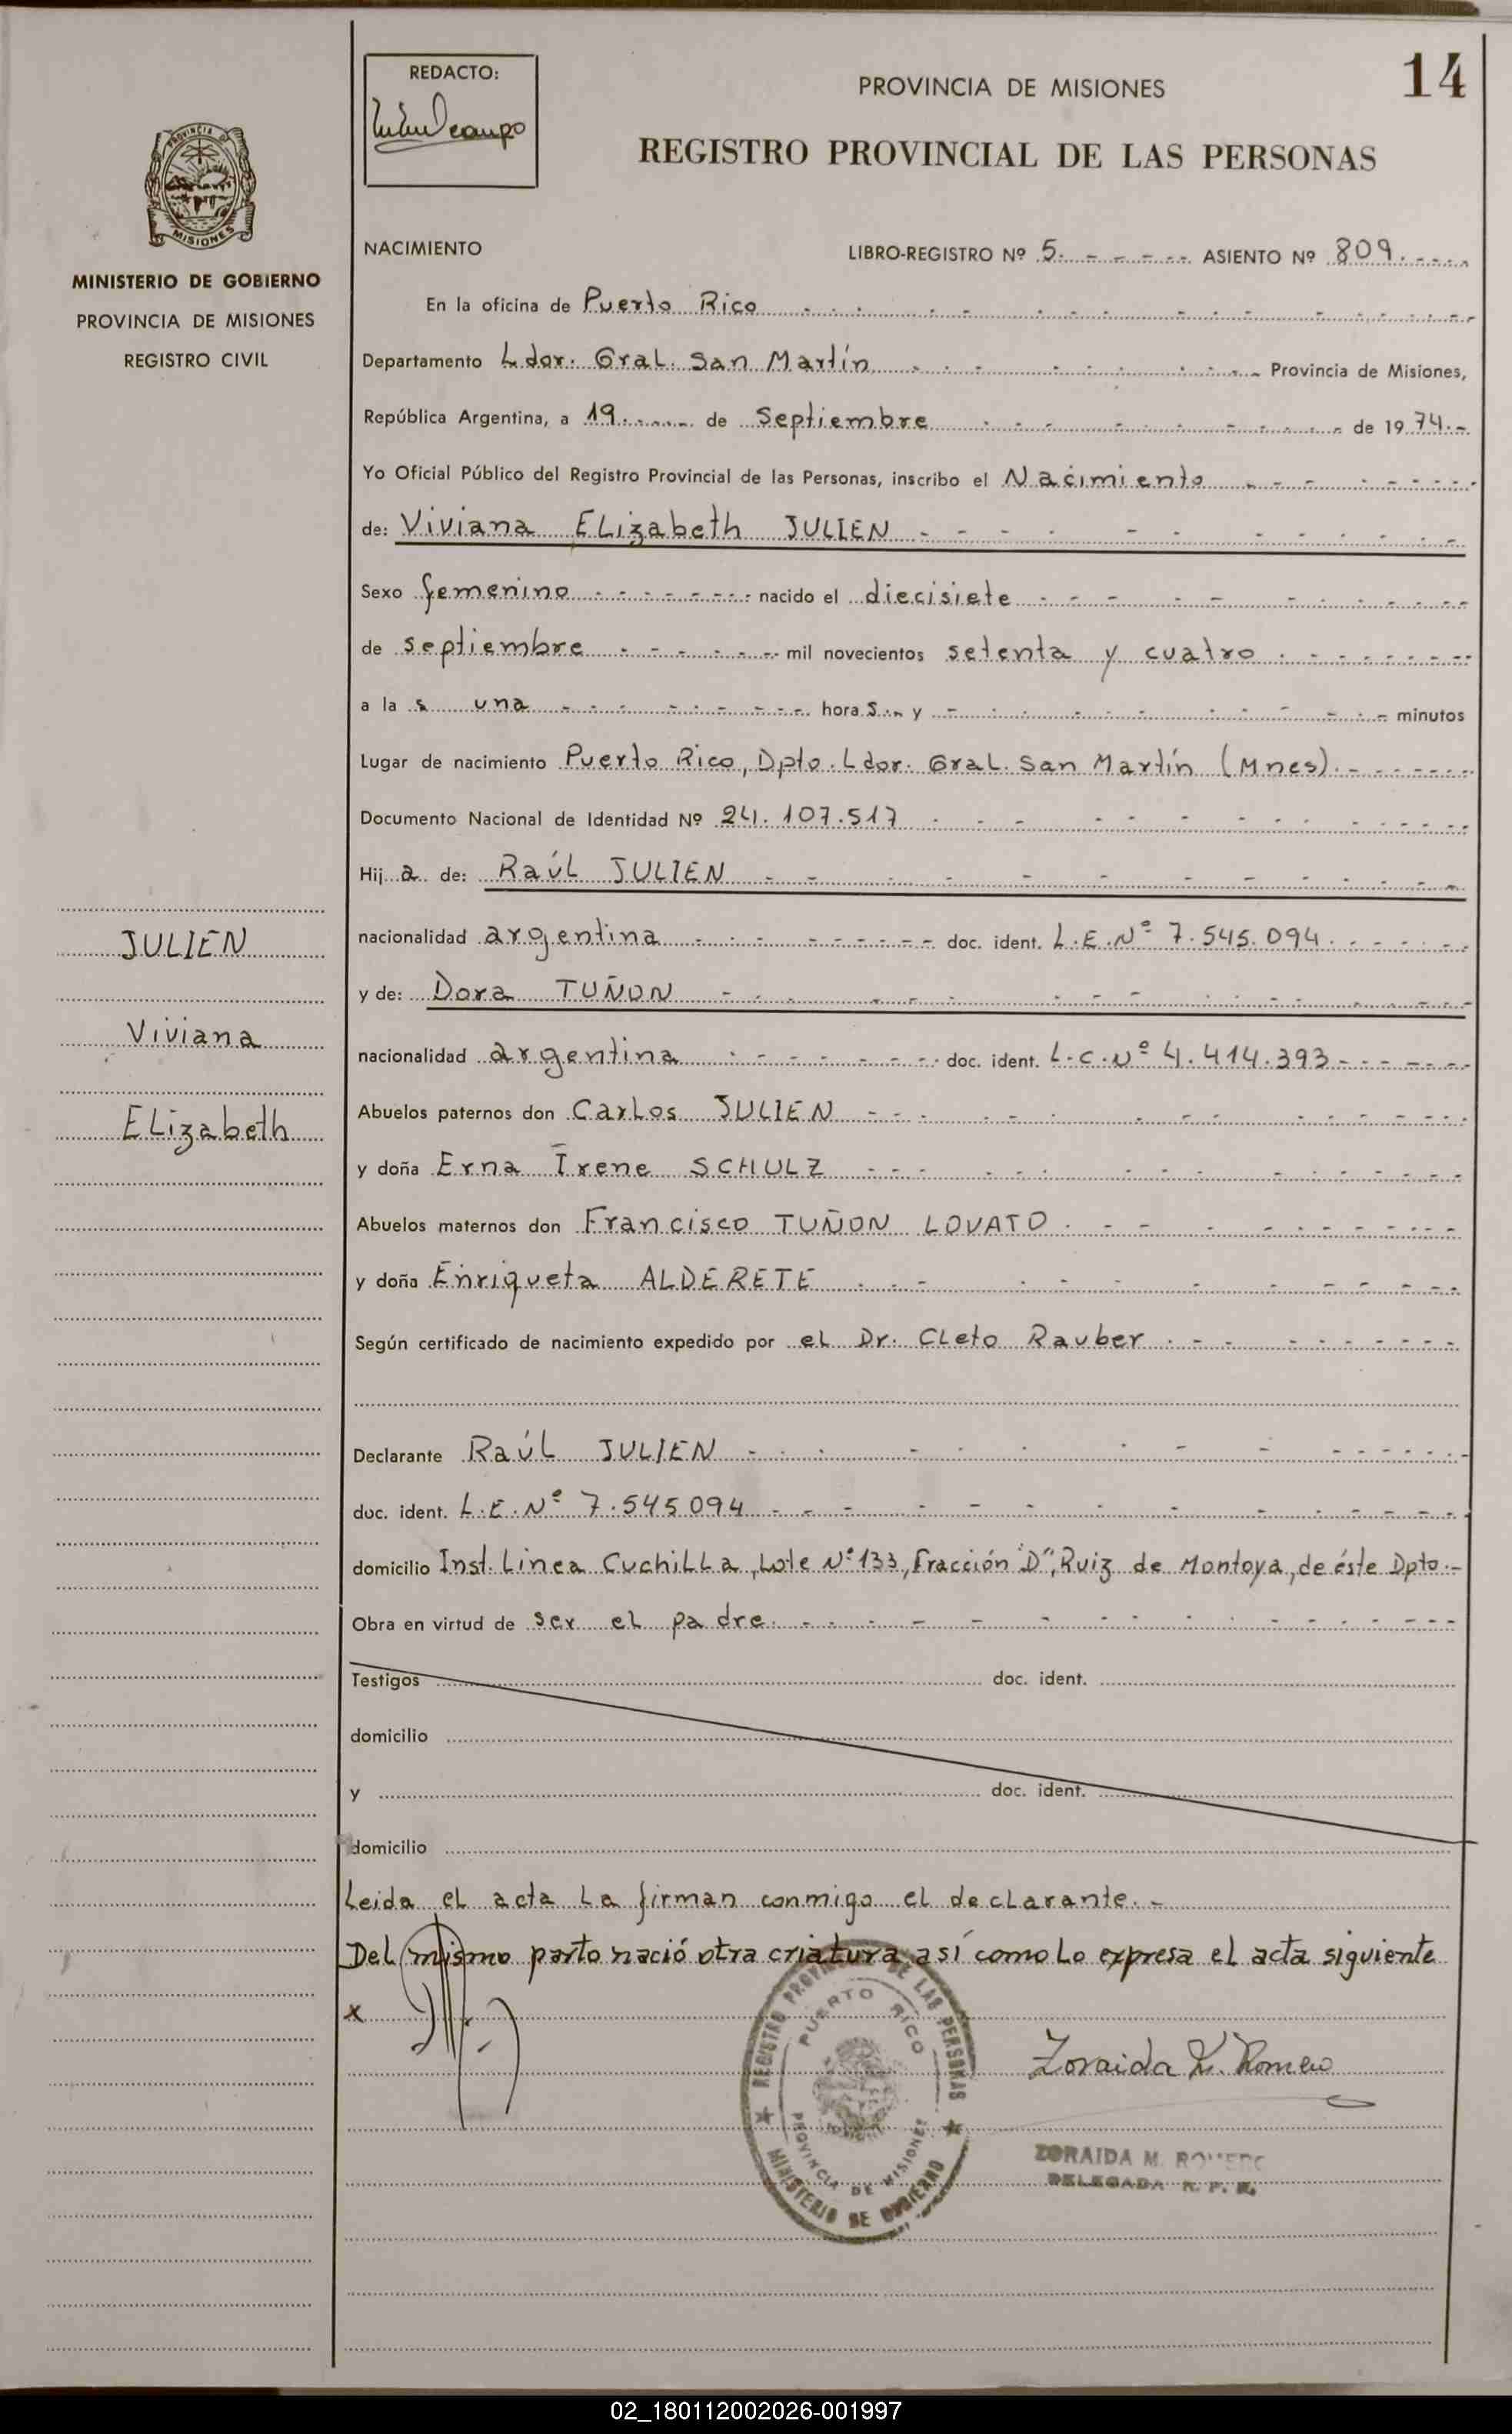 14
REDACTO:
PROVINCIA DE MISIONES
REGISTRO PROVINCIAL DE LAS PERSONAS
PROVINCIA DE
MISIONES
MINISTERIO DE GOBIERNO
PROVINCIA DE MISIONES
REGISTRO CIVIL
NACIMIENTO LIBRO-REGISTRO Nº 5. ASIENTO Nº 809.
En la oficina de Puerto Rico
Departamento Ldor. Gral. San Martín Provincia de Misiones,
República Argentina, a 19 de Septiembre de 1974.-
Yo Oficial Público del Registro Provincial de las Personas, inscribo el Nacimiento
de: Viviana Elizabeth JULIEN
Sexo femenino nacido el diecisiete
de septiembre mil novecientos setenta y cuatro
a la s una hora s y minutos
Lugar de nacimiento Puerto Rico, Dpto. Ldor. Gral. San Martín (Mnes).
Documento Nacional de Identidad Nº 24.107.517
Hij a de: Raúl JULIEN
nacionalidad argentina doc. ident. L.E.Nº 7.545.094.
y de: Dora TUÑON
nacionalidad argentina doc. ident. L.C.Nº 4.414.393
Abuelos paternos don Carlos JULIEN
y doña Erna Irene SCHULZ
Abuelos maternos don Francisco TUÑON LOVATO
y doña Enriqueta ALDERETE
Según certificado de nacimiento expedido por el Dr. Cleto Rauber
Declarante Raúl JULIEN
doc. ident. L.E.Nº 7.545.094
domicilio Inst. Linea Cuchilla, Lote Nº 133, Fracción "D", Ruiz de Montoya, de éste Dpto.-
Obra en virtud de ser el padre.
Testigos doc. ident.
domicilio
y doc. ident.
domicilio
Leida el acta la firman conmigo el declarante.-
Del mismo parto nació otra criatura, así como lo expresa el acta siguiente
x
JULIEN
Viviana
Elizabeth
REGISTRO PROVINCIAL DE LAS PERSONAS
PUERTO RICO
PROVINCIA DE MISIONES
MINISTERIO DE GOBIERNO
Zoraida M. Romero
ZORAIDA M. ROMERO
DELEGADA R. P. P.
02_180112002026-001997